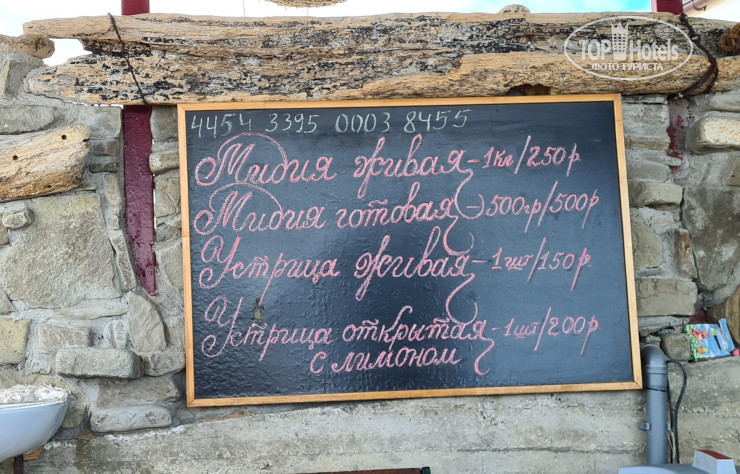 TOP Hotels
ФОТО ТУРИСТА
4454 3395 0003 8455
Мидия живая - 1кг/250р
Мидия готовая - 500гр/500р
Устрица живая - 1шт/150р.
Устрица открытая - 1шт/200р
с лимоном